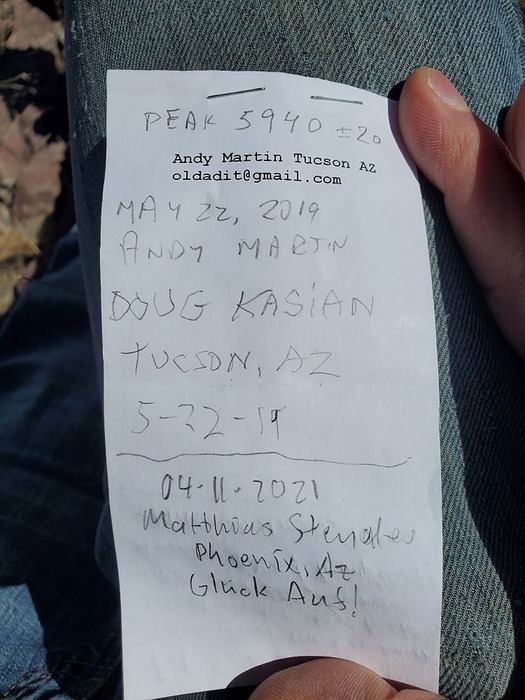 PEAK 5940 ±20
Andy Martin Tucson AZ
oldadit@gmail.com
MAY 22, 2019
ANDY MARTIN
DOUG KASIAN
TUCSON, AZ
5-22-19
04-11-2021
Matthias
Phoenix, Az
Glück Auf!